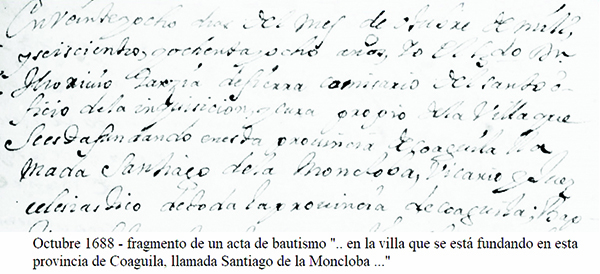 En veinte y ocho dias del mes de octubre de mill
y seiscientos y ochenta y ocho años, Yo el
garzia de sierra comisario del santo o
ficio de la inquisicion, y cura propio de la Villa que
se esta fundando en esta provincia de Coaguila lla
mada Santiago de la Moncloba, Vicario y Juez
eclesiastico de toda la provincia de Coaguila;
Octubre 1688 - fragmento de un acta de bautismo ".. en la villa que se está fundando en esta
provincia de Coaguila, llamada Santiago de la Moncloba ..."